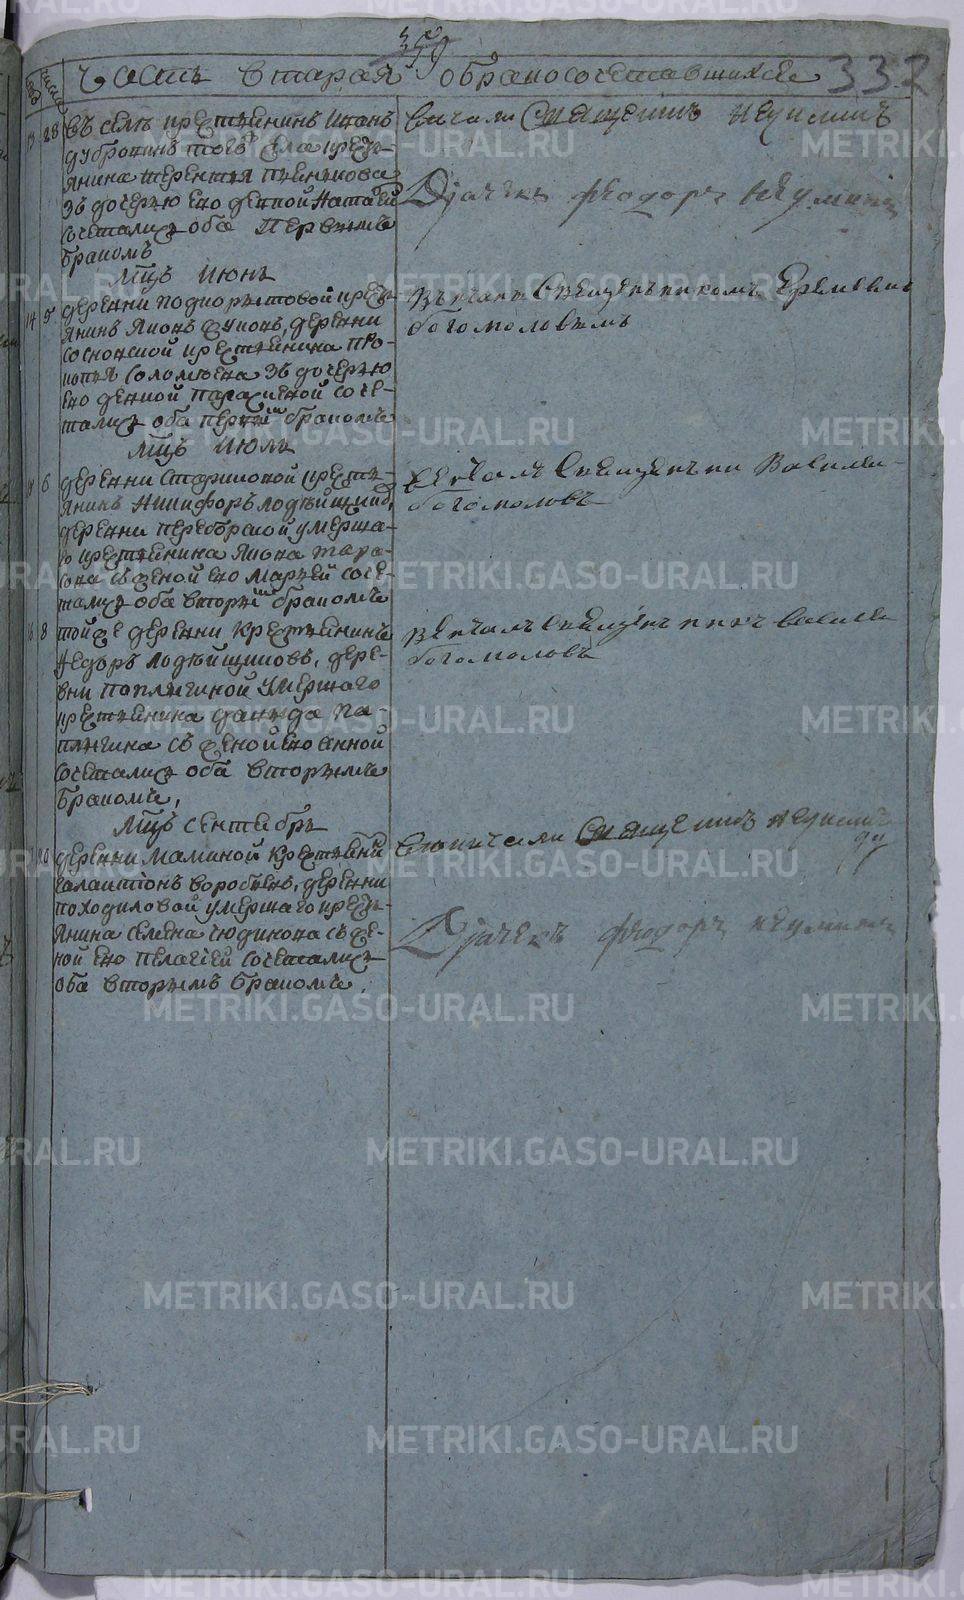 359
332
Часть вторая о бракосочетавшихся
числа
13 28 въ селѣ крестьянинъ Иванъ
Дубровинъ того села кресть-
янина Терентья
зъ дочерью ево девкой Натальей
сочетались оба первымъ
бракомъ
венчали священникъ Неуминъ
Дьячекъ Феодоръ Неуминъ
Мцъ Июнь
14 5 деревни кресть-
янинъ Яковъ деревни
Сосновской крестьянина Про-
копья Соломеина зъ дочерью
ево девкой Параскевой соче-
тались оба первым бракомъ
венчано священникомъ Еремеемъ
Богомоловымъ
Мцъ Июль
8 деревни Стариковой кресть-
янинъ Никифоръ Лодейщиков,
деревни Переборской умерша-
го крестьянина Якова Тара-
сова съ женой ево Марьей соче-
тались оба вторым бракомъ
венчалъ священникъ Василей
Богомоловъ
16 8 той же деревни крестьянинъ
Федоръ Лодейщиковъ, дере-
вни Паплыгиной умершаго
крестьянина Давыда Па-
плыгина съ женой ево Анной
сочетались оба вторымъ
бракомъ,
венчалъ священникъ Василей
Богомоловъ
Мцъ Сентябрь
20 деревни Маминой крестьянин
Галактионъ Воробьевъ, деревни
Походиловой умершаго кресть-
янина Семена Чюдинова съ же-
ной ево Пелагией сочетались
оба вторымъ бракомъ.
венчали священникъ Неуминъ
Дьячекъ Феодоръ Неуминъ
METRIKI.GASO-URAL.RU